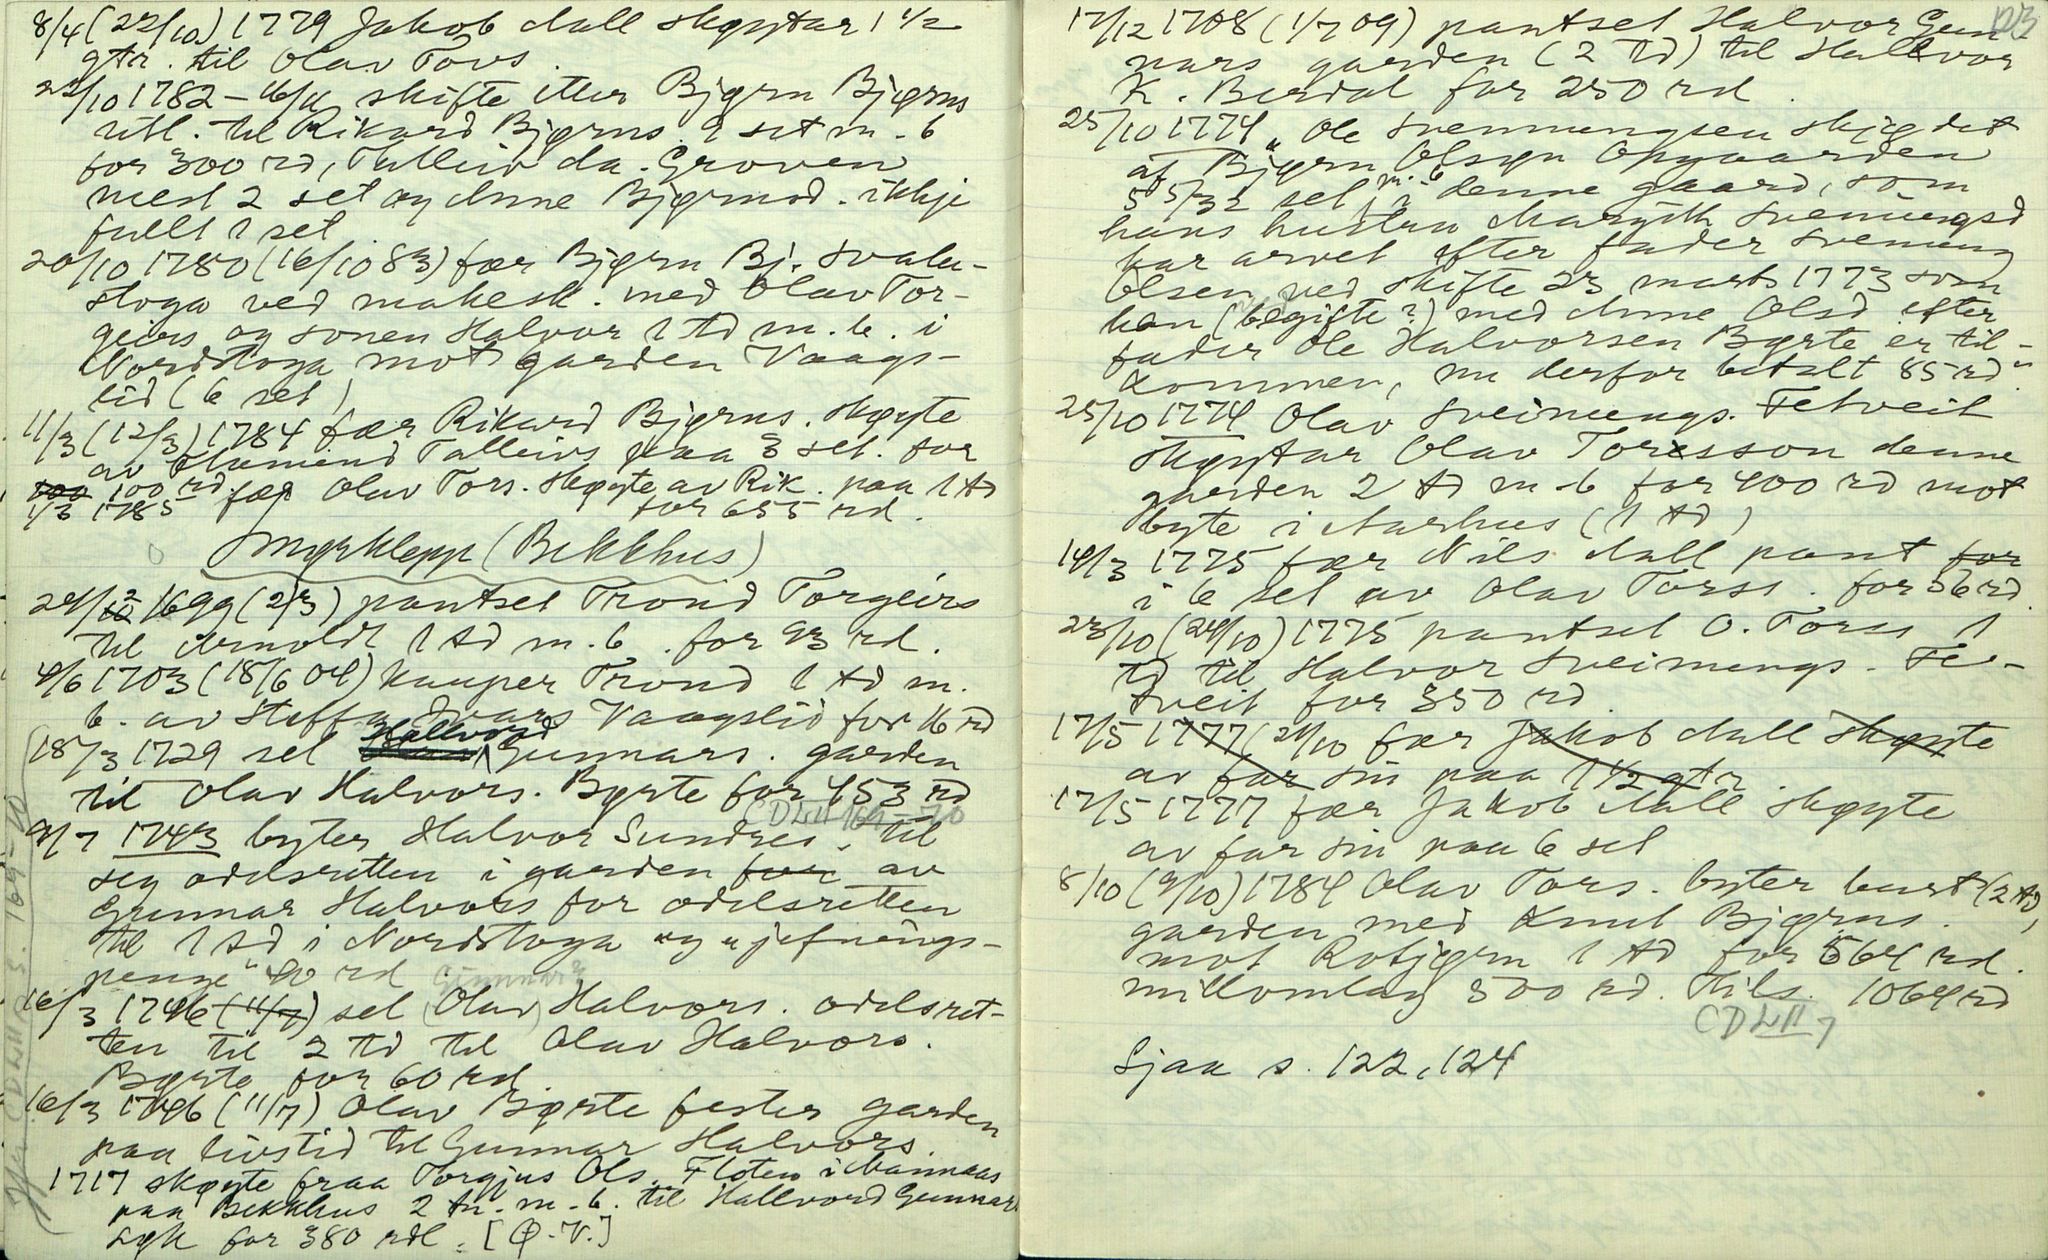 8/4 (22/10) 1779 Jakob Aall skøytar 1 1/2
gtr. til Olav Tovs
22/10 1782 – 16/11 skifte etter Bjørn Bjørns
utl. til Rikard Bjørns. 9 set m. b
for 300 rd, Talleiv da. Groven
med 2 set og Anne Bjørnsd. ikkje
fullt 1 set
20/10 1780 (16/10 83) fær Bjørn Bj. Svalu-
stoga ved makesk. med Olav Tor-
geirs og sonen Halvor 1 td m. b. i
Nordstoga mot garden Vaags-
lid (6 set)
11/3 (12/3) 1784 fær Rikard Bjørns. skøyte
av Aamund Talleivs paa 3 set. for
100 rd.
1/3 1785 fær Olav Tors. skøyte av Rik. paa 1 td
for 655 rd.
Smyrklepp (Bekkhus)
24/2 1699 (2/3) pantset Trond Torgeirs
til Arnoldt 1 td m. b. for 93 rd.
4/6 1703 (18/6 04) kauper Trond 1 td m.
b. av Steffa Ivars Vaagslid for 16 rd
18/3 1729 sel Hallvord Gunnars. garden
til Olav Halvors. Byrte for 453 rd
CD LII 169-70
9/7 1743 byter Halvor Sundres. til
seg odelsretten i garden for av
Gunnar Halvors for odelsretten
til 1 td i Nordstoga og "jefnings-
penge" 40 rd
Gunnar?
16/3 1746 (11/7) sel (Olav) Halvors. odelsret-
ten til 2 td til Olav Halvors.
Byrte for 60 rd.
16/3 1746 (11/7) Olav Byrte fester garden
paa livstid til Gunnar Halvors.
1717 skøyte fraa Torgjus Ols. Floten i Mannaas
paa Bekkhus 2 tn. m. b. til Hallvord Gunnars
Lyk for 380 rdl. [Ø. V.]
CD LII s. 169-70
123
12/12 1708 (1/7 09) pantset Halvor Gun-
nars garden (2 td) til Hallvor
K. Berdal for 250 rd.
25/10 1774 "Ole Svenningsen skjødet
af Bjørn Olsøn Opgaarden
5 5/32 set m. b i denne gaard, som
hans hustru Margith Svenningsd
har arvet efter fader Svenning
Olsen ved skifte 23 marts 1773 som
han (begifte?) med Anne Olsd efter
fader Ole Halvorsen Byrte er til-
kommen, nu derfor betalt 85 rd".
25/10 1774 Olav Sveinungs. Fetveit
skøytar Olav Toresson denne
garden 2 td m. b for 400 rd mot
byte i Aarhus (1 td)
14/3 1775 fær Nils Aall pant for
i 6 set av Olav Torss. for 56 rd.
23/10 (24/10) 1775 pantset O. Torss 1
td til Halvor Sveinungs. Fe-
tveit for 350 rd.
12/5 1777 (24/10 fær Jakob Aall skøyte
av far sin paa 1 1/2 gtr
12/5 1777 fær Jakob Aall skøyte
av far sin paa 6 set
8/10 (9/10) 1784 Olav Tors. byter burt (2 td)
garden med Knut Bjørns.
mot Rotjørn 1 td for 564 rd.
millomlag 500 rd. Tils. 1064 rd
CD LII 7
Sjaa s. 122, 124